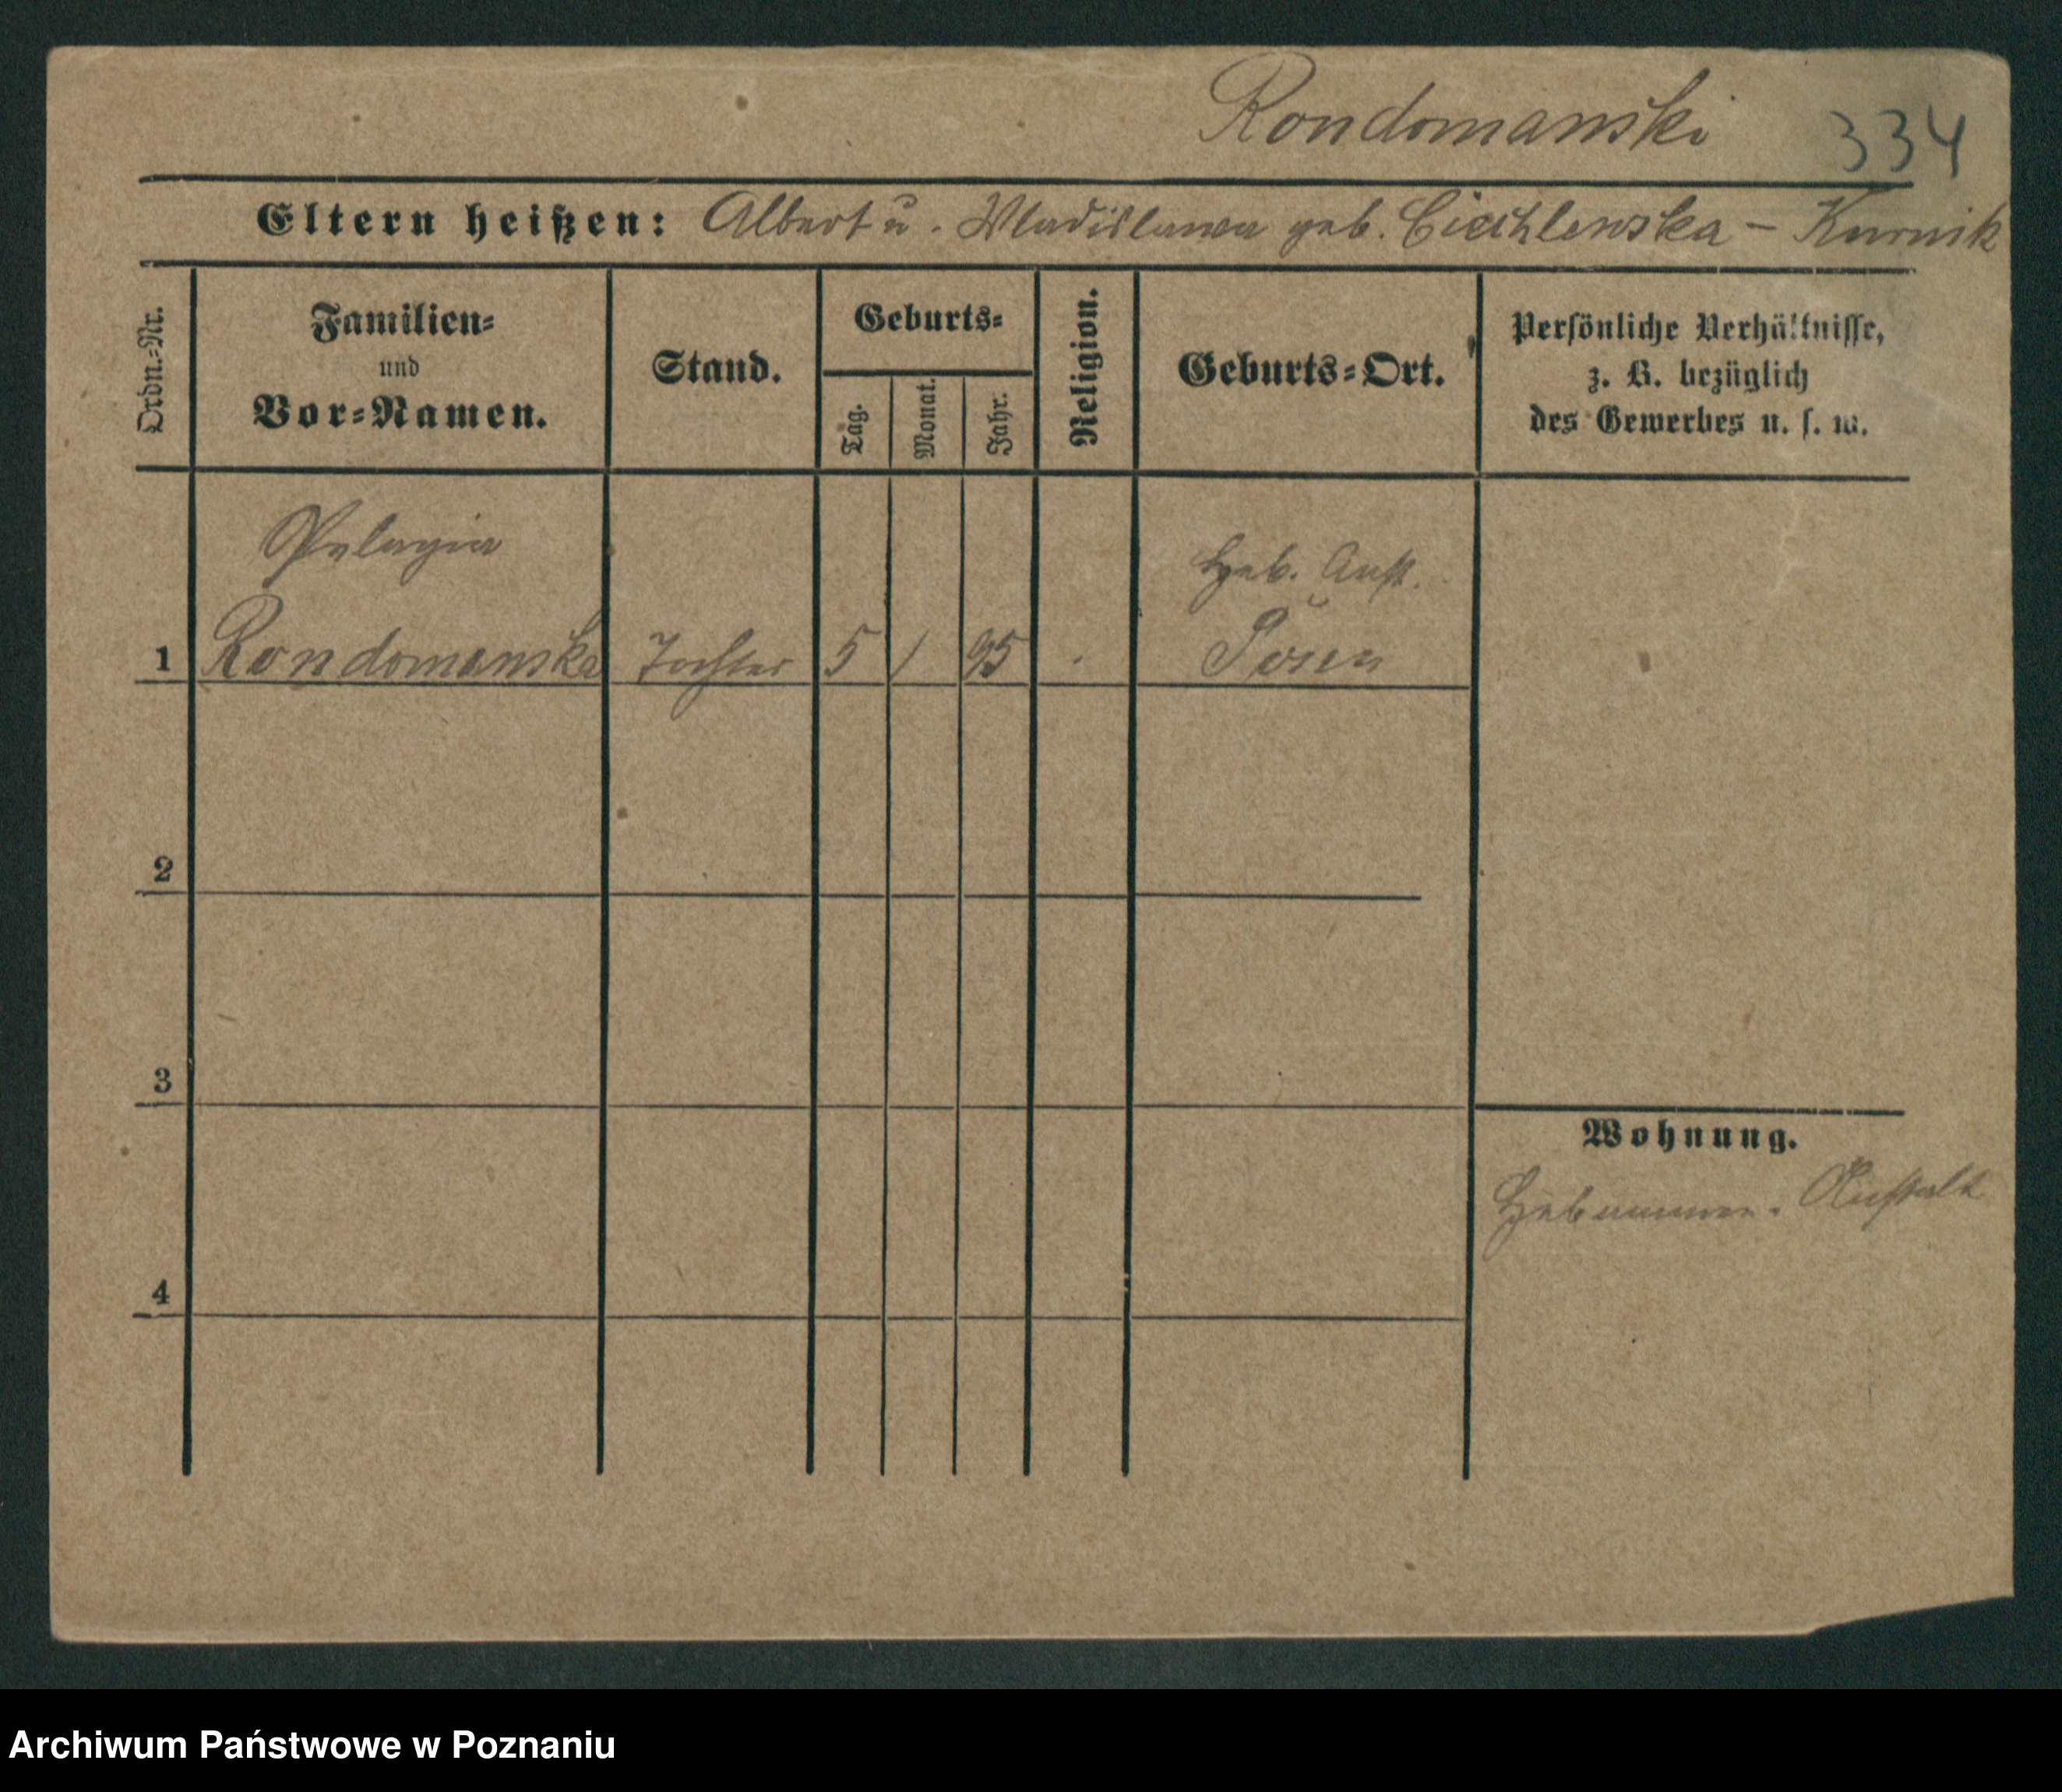 Rondomanski 334
Eltern heißen: Albert u. Wladislawa geb. Ciechlewska - Kurnik
Ordn.-Nr.
Familien- und Vor-Namen.
Stand.
Geburts-
Tag. Monat. Jahr.
Religion.
Geburts-Ort.
Persönliche Verhältnisse,
z. B. bezüglich
des Gewerbes u. s. w.
Pelagia Heb. Anst.
1 Rondomanska Tochter 5 / 95 . Posen
2
3
Wohnung.
Hebammen-Anstalt
4
Archiwum Państwowe w Poznaniu